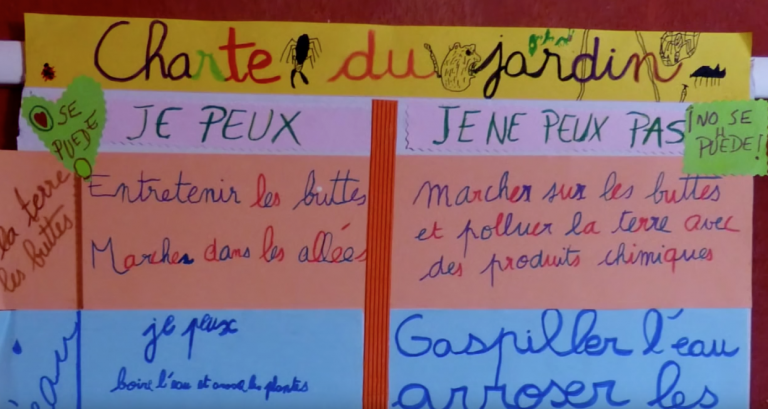 Charte du jardin
SE
PUEDE
JE PEUX
JE NE PEUX PAS
¡NO SE
PUEDE!
la terre
les buttes
Entretenir les buttes
Marcher dans les allées
marcher sur les buttes
et polluer la terre avec
des produits chimiques
je peux
boire l'eau et arroser les plantes
Gaspiller l'eau
arroser les